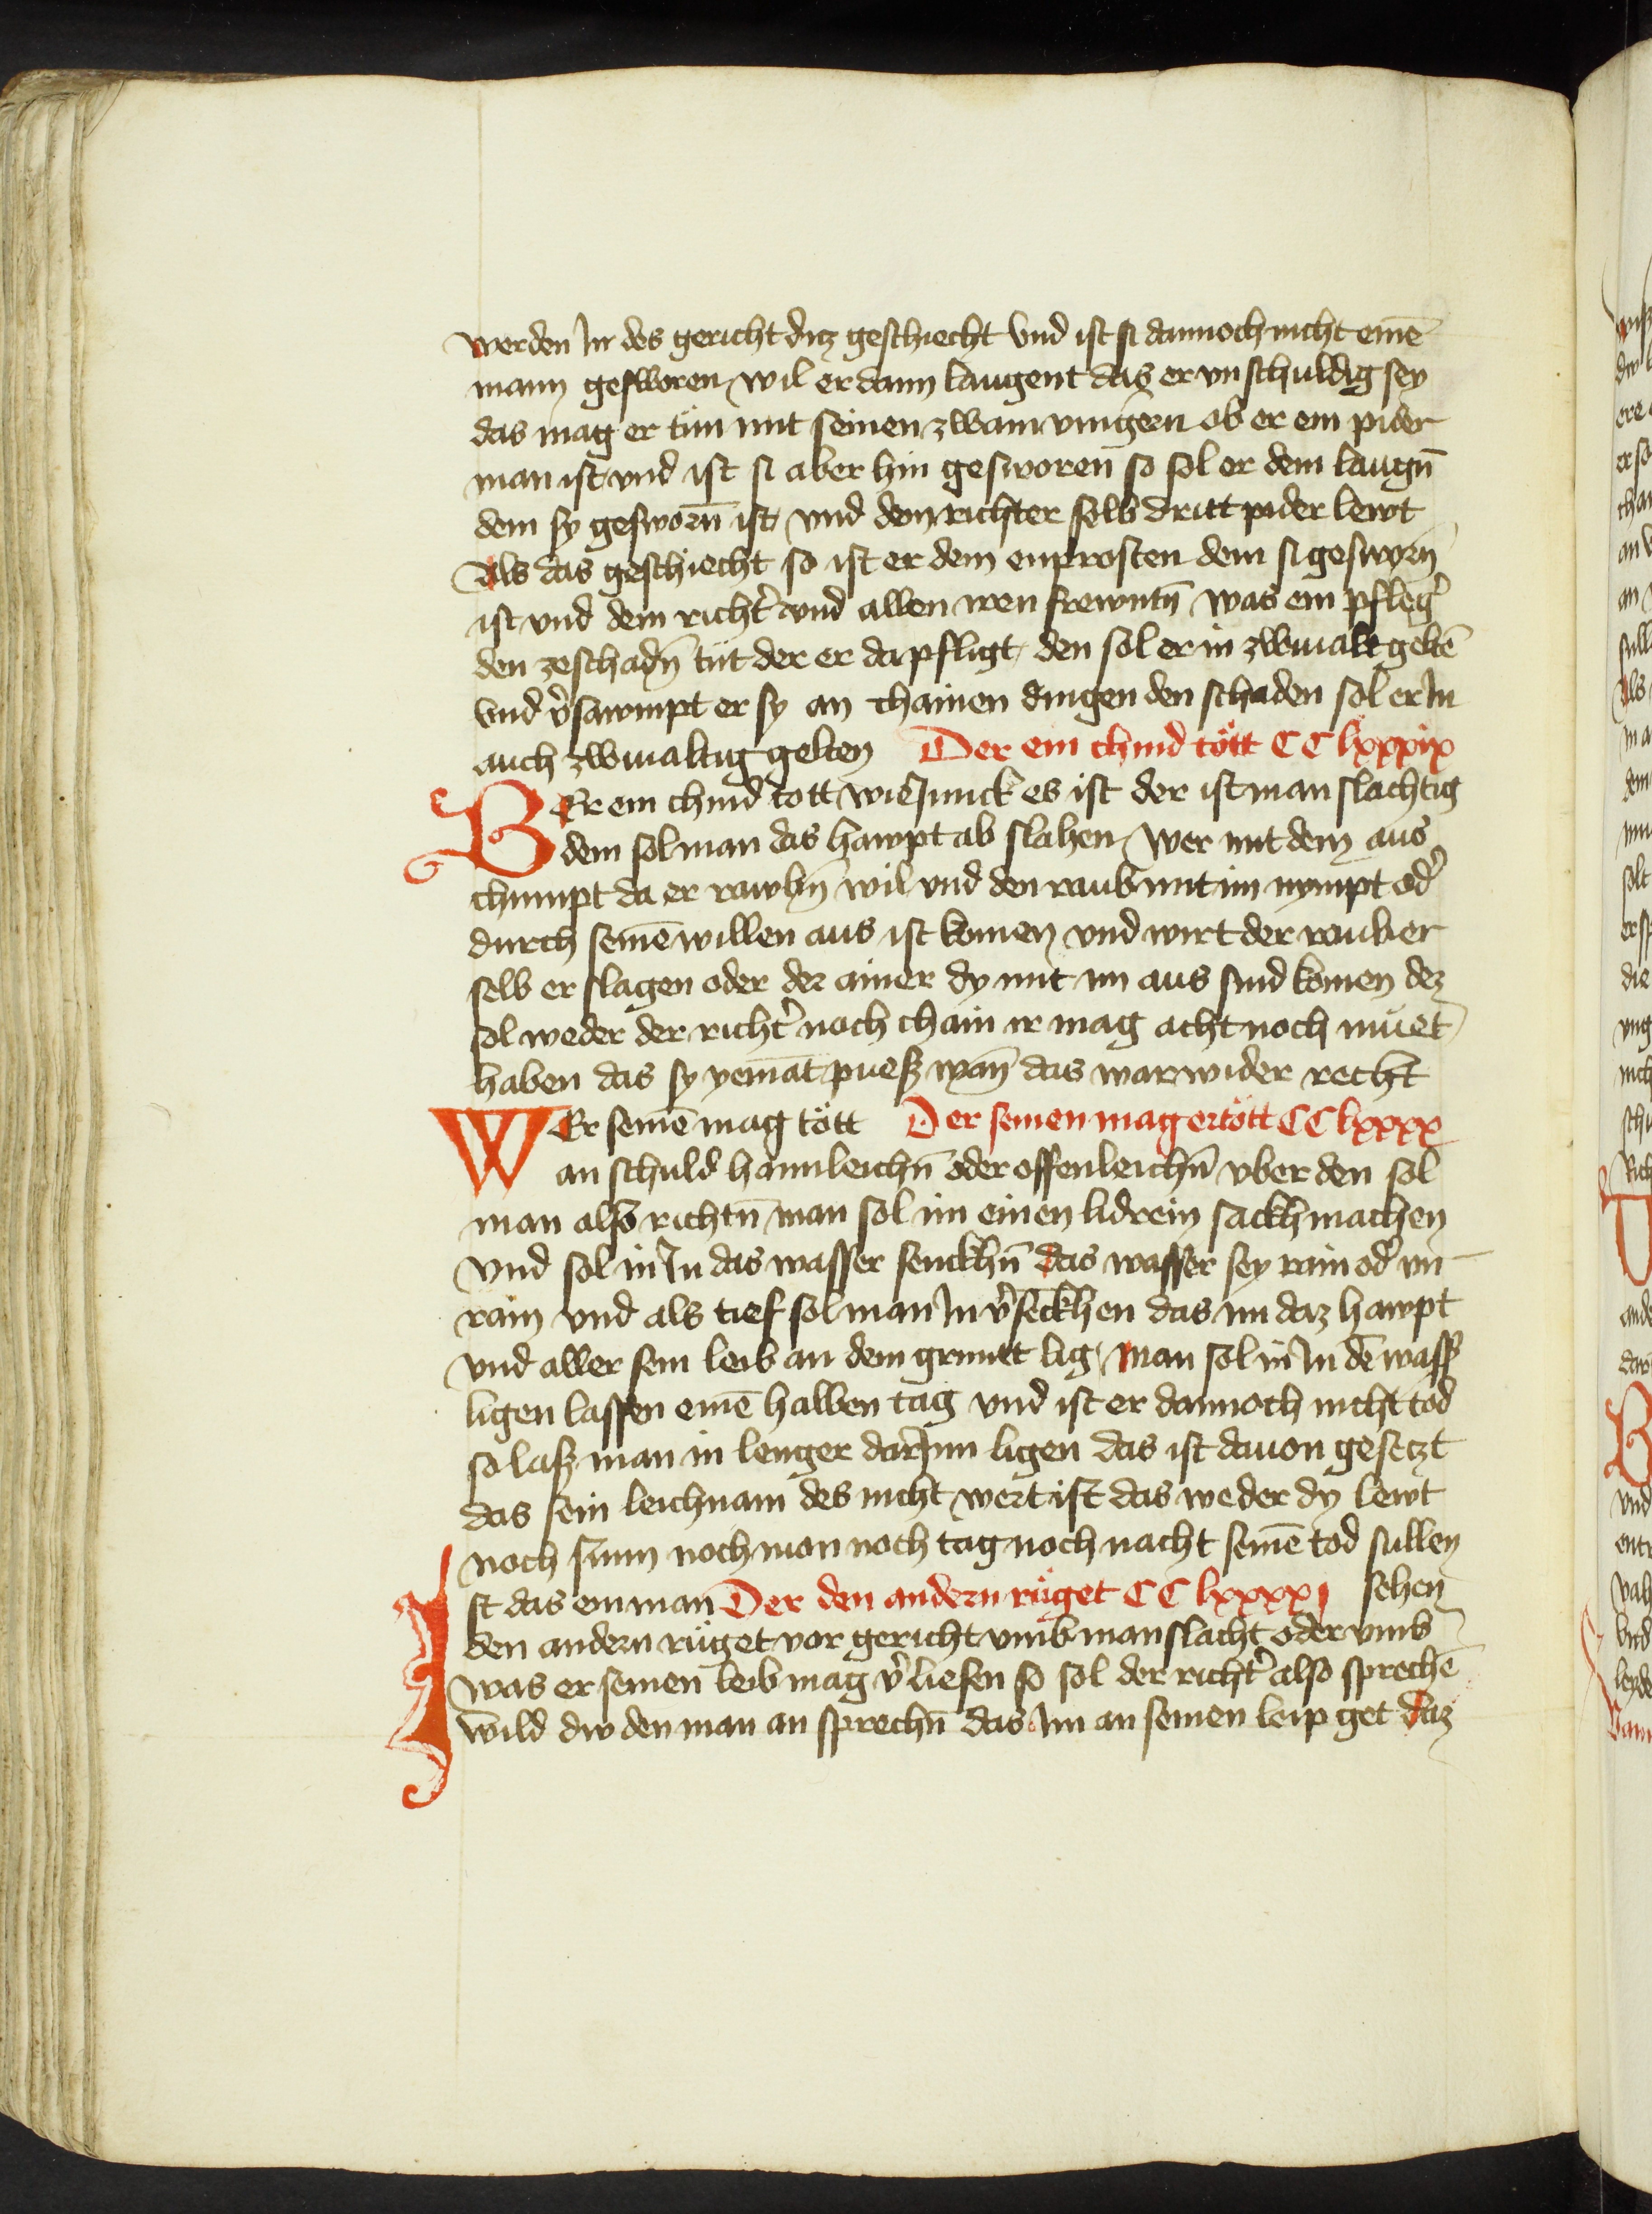 werden Jn des gericht ditz geschiecht vnd ist si dannoch nicht einē
mann gesworen wil er dann laugent das er vnschuldig sey
das mag er tůn mit seinen zwain vingern ob er ein pider
man ist vnd ist si aber hin gesworen so sol er dem laugn̄
dem sy gesworn̄ ist vnd dem richter selb dritt pider lewt
Als das geschiecht so ist er dem enprosten dem si geswoͤrn
ist vnd dem richt̉ vnd allen iren frewntn̄ was ein pfleg̉
den zeschadn̄ tůt der er da pfligt den sol er in zwiualt geltē
vnd v̉sawmpt er sy an chainen dingen den schaden sol er Jn
auch zwiualtig gelten Der ein chind toͤtt CC lxxxix
WEr ein chind tott wie Junck es ist der ist man slachtig
dem sol man das hawpt ab slahen Wer mit dem aus
chumpt da er rawbn̄ wil vnd den raub mit im nympt od̉
durch seinē willen aus ist komen vnd wirt der rauber
selb erslagen oder der ainer dy mit im aus sind komen dez
sol weder der richt̉ noch chain ir mag acht noch můet
haben das sy yemāt puesz wan̄ das war wider recht
WEr seinē mag toͤtt Der seinen mag ertoͤtt CC lxxxx
an schuld haimleichn̄ oder offenleichn̄ vber den sol
man also richtn̄ man sol im einen lidrein sackh machen
vnd sol in Jn das wasser senckhn̄ das wasser sey rain od̉ vn
rain vnd als tief sol man Jn v̉senckhen das im daz hawpt
vnd aller sein leib an dem gruntt lig Man sol in Jn dē wass̉
ligen lassen einē halben tag vnd ist er dannoch nicht tod
so lasz man in lenger darJnn ligen das ist dauon gesetzt
das sein leichnam des nicht wert ist das weder dy lewt
noch sunn noch mon noch tag noch nacht seinē tod sullen
Jst das ein man Der den andern růget CC lxxxxi sehen
den andern růget vor gericht vmb manslacht oder vmb
was er seinen leib mag v̉liesen so sol der richt̉ also sprechē
wild dw den man an sprechn̄ das Jm an seinen leip get daz